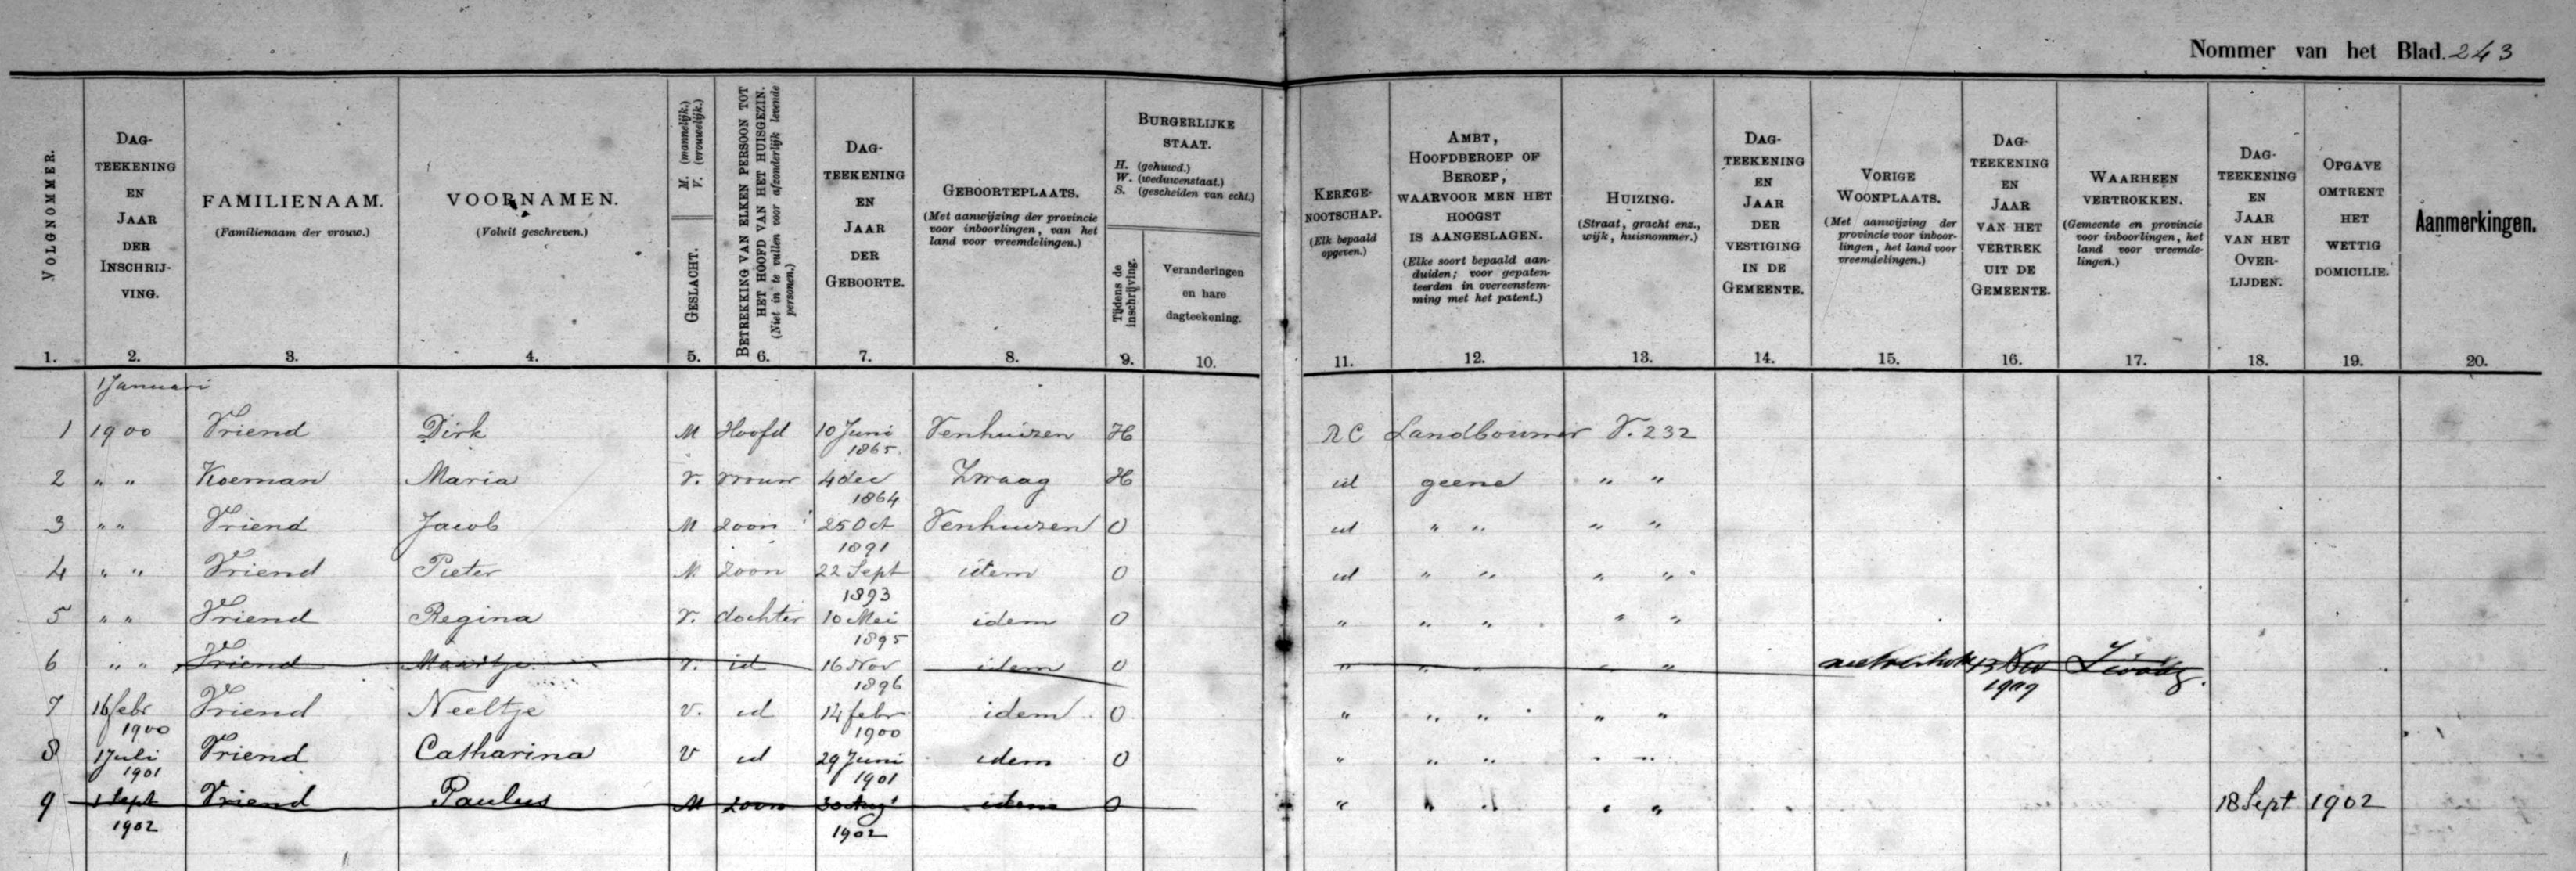 Nommer van het Blad. 243
VOLGNOMMER.
1.
DAG-
TEEKENING
EN
JAAR
DER
INSCHRIJ-
VING.
2.
FAMILIENAAM.
(Familienaam der vrouw.)
3.
VOORNAMEN.
(Voluit geschreven.)
4.
M. (mannelijk.)
V. (vrouwelijk.)
GESLACHT.
5.
BETREKKING VAN ELKEN PERSOON TOT
HET HOOFD VAN HET HUISGEZIN.
(Niet in te vullen voor afzonderlijk levende
personen.)
6.
DAG-
TEEKENING
EN
JAAR
DER
GEBOORTE.
7.
GEBOORTEPLAATS.
(Met aanwijzing der provincie
voor inboorlingen, van het
land voor vreemdelingen.)
8.
BURGERLIJKE
STAAT.
H. (gehuwd.)
W. (weduwenstaat.)
S. (gescheiden van echt.)
Tijdens de
inschrijving.
9.
Veranderingen
en hare
dagteekening.
10.
KERKGE-
NOOTSCHAP.
(Elk bepaald
opgeven.)
11.
AMBT,
HOOFDBEROEP OF
BEROEP,
WAARVOOR MEN HET
HOOGST
IS AANGESLAGEN.
(Elke soort bepaald aan-
duiden; voor gepaten-
teerden in overeenstem-
ming met het patent.)
12.
HUIZING.
(Straat, gracht enz.,
wijk, huisnommer.)
13.
DAG-
TEEKENING
EN
JAAR
DER
VESTIGING
IN DE
GEMEENTE.
14.
VORIGE
WOONPLAATS.
(Met aanwijzing der
provincie voor inboor-
lingen, het land voor
vreemdelingen.)
15.
DAG-
TEEKENING
EN
JAAR
VAN HET
VERTREK
UIT DE
GEMEENTE.
16.
WAARHEEN
VERTROKKEN.
(Gemeente en provincie
voor inboorlingen, het
land voor vreemde-
lingen.)
17.
DAG-
TEEKENING
EN
JAAR
VAN HET
OVER-
LIJDEN.
18.
OPGAVE
OMTRENT
HET
WETTIG
DOMICILIE.
19.
Aanmerkingen.
20.
1 Januari
1 1900 Vriend Dirk M Hoofd 10 Juni Venhuizen H RC Landbouwer V. 232
1865.
2 " " Koeman Maria v. vrouw 4 dec Zwaag H id geene " "
1864
3 " " Vriend Jacob M zoon 25 Oct Venhuizen O id " " " "
1891
4 " " Vriend Pieter M. zoon 22 Sept idem O id " " " "
1893
5 " " Vriend Regina v. dochter 10 Mei idem O " " " " "
1895
6 " " Vriend Maartje v. id 16 Nov idem O " " " " " 13 Nov
1896 1909
7 16 febr Vriend Neeltje v. id 14 febr idem O " " " " "
1900 1900
8 1 Juli Vriend Catharina V id 29 Juni idem O " " " " "
1901 1901
9 1 Sept Vriend Paulus M zoon 30 Aug idem O " " " " " 18 Sept 1902
1902 1902